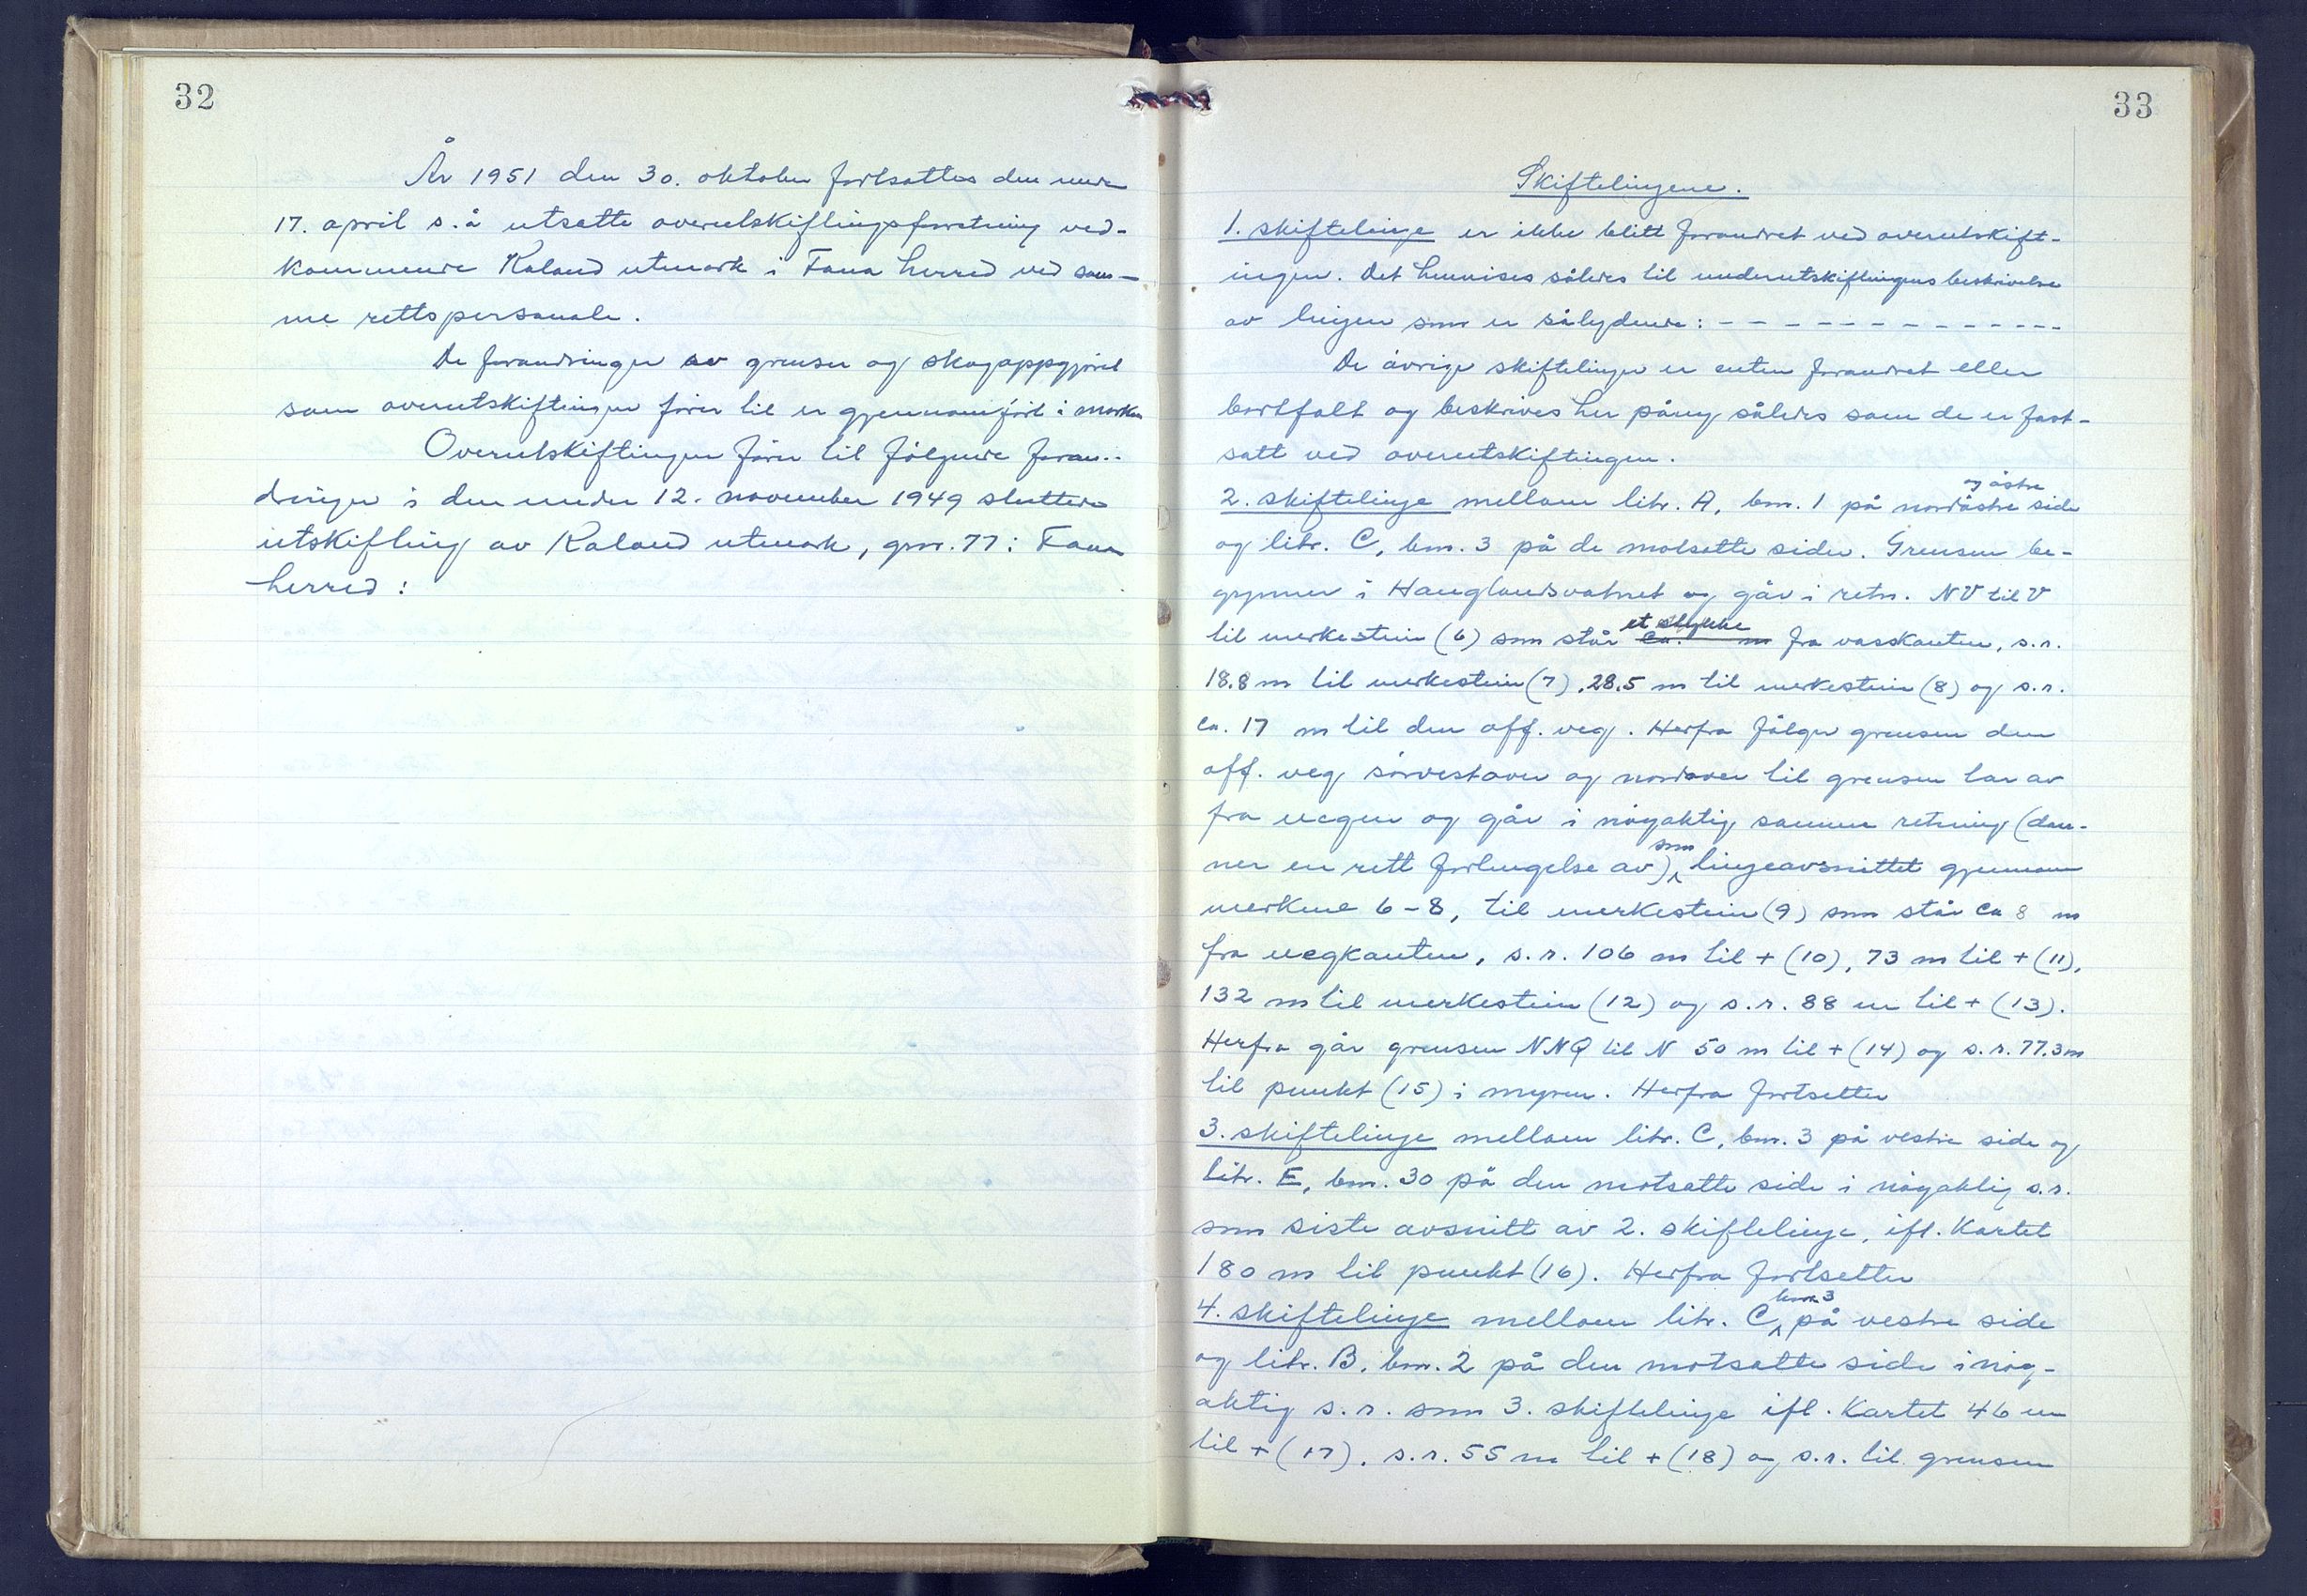 32
År 1951 den 30. oktober fortsattes den under
17. april s.å utsatte overutskiftingsforretning ved-
kommende Kaland utmark i Fana herred ved sam-
me rettspersonale.
De forandringer av grenser og skogoppgjöret
som overutskiftingen förer til er gjennomfört i marken
Overutskiftingen förer til fölgende foran-
dringer i den under 12. november 1949 sluttede
utskifting av Kaland utmark, gnr. 77 i Fana
herred:
33
Skiftelinjene.
1. skiftelinje er ikke blitt forandret ved overutskift-
ingen. Det henvises således til underutskiftingens beskrivelse
av linjen som er sålydende: - - - - - - - - - - - - - -
De övrige skiftelinjer er enten forandret eller
bortfalt og beskrives her påny således som de er fast-
satt ved overutskiftingen.
og östre
2. skiftelinje mellom litr. A, bnr. 1 på nordöstre side
og litr. C, bnr. 3 på de motsatte sider. Grensen be-
gynner i Hauglandsvatnet og går i retn. NV til V
et stykke
til merkestein (6) som står ca. m fra vasskanten, s.r.
18.8 m til merkestein (7), 28.5 m til merkestein (8) og s.r.
ca. 17 m til den off. veg. Herfra fölger grensen den
off. veg sörvestover og nordover til grensen tar av
fra vegen og går i nöyaktig samme retning (dan-
som
ner en rett forlengelse av) linjeavsnittet gjennom
merkene 6-8, til merkestein (9) som står ca 8 m
fra vegkanten, s.r. 106 m til + (10), 73 m til + (11),
132 m til merkestein (12) og s.r. 88 m til + (13).
Herfra går grensen NNØ til N 50 m til + (14) og s.r. 77.3 m
til punkt (15) i myren. Herfra fortsetter
3. skiftelinje mellom litr. C, bnr. 3 på vestre side og
litr. E, bnr. 30 på den motsatte side i nöyaktig s.r.
som siste avsnitt av 2. skiftelinje, ifl. kartet
180 m til punkt (16). Herfra fortsetter
bnr. 3
4. skiftelinje mellom litr. C, på vestre side
og litr. B, bnr. 2 på den motsatte side i nöy-
aktig s.r. som 3. skiftelinje ifl. kartet 46 m
til + (17), s.r. 55 m til + (18) og s.r. til grensen